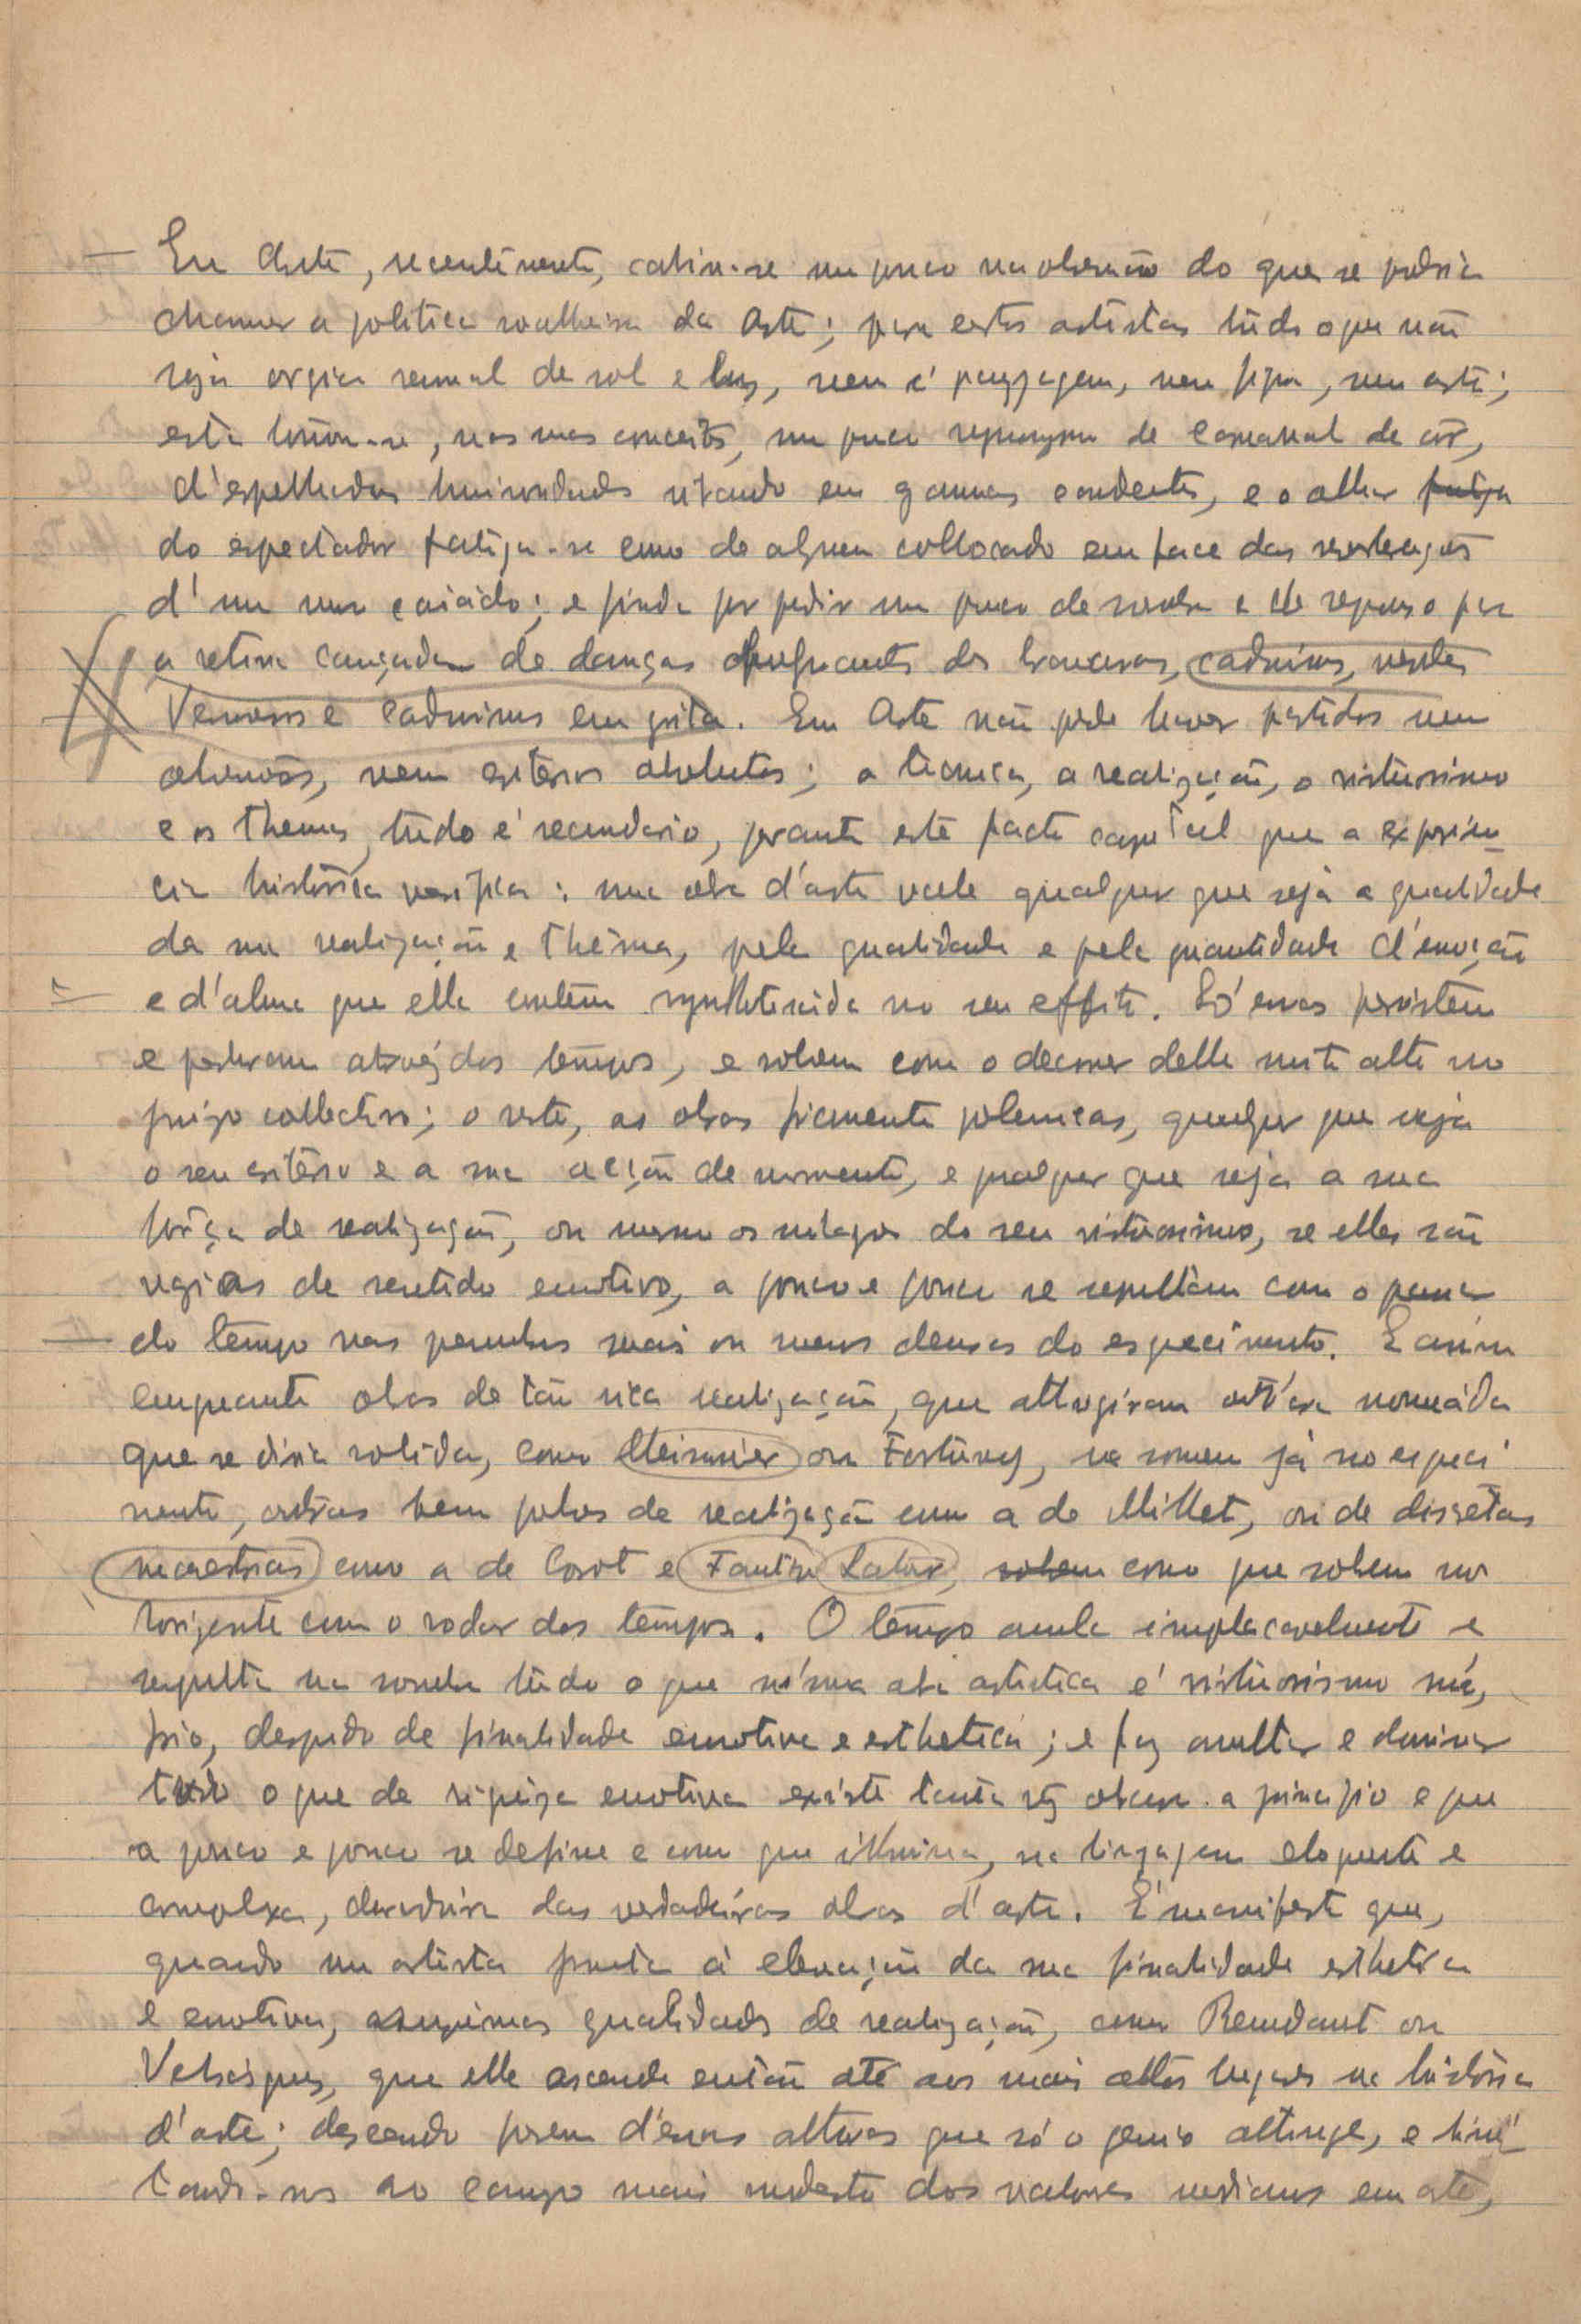 Em Arte, recentemente, cahiu-se um pouco na obsessão do que se podria
chamar a politica soalheira da Arte; para estes artistas tudo o que não
seja orgia sensual de sol e luz, nem é payzagem, nem figura, nem arte;
esta tornou-se, nos seus conceitos, um pouco synonymo de carnaval de côr,
d'espelhadas luminosidades vibrando em gammas candentes, e o olhar
do espectador fatiga-se como de alguem collocado em face das reverberações
d'um muro caiado; e finda por pedir um pouco de sombra e de repouso para
a retina cançada de danças dos brancos, cadmiuns, verdes
Veroneses e cadmiuns em grita. Em Arte não pode haver partidos nem
obsessões, nem criterios absolutos; a tecnica, a realização, o virtuosismo
e os themas, tudo é secundario, perante este facto capital que a experien-
cia histórica verifica: uma obra d'arte vale qualquer que seja a qualidade
da sua realização e thêma, pela qualidade e pela quantidade d'emoção
e d'alma que ella contêm synthetisida no seu effeito. Só essas persistem
e perduram atravéz dos tempos, e sobem com o decorrer delle muito alto no
juizo collectivo; o resto, as obras friamente polemicas, qualquer que seja
o seu critério e a sua acção de momento, e qualquer que seja a sua
fôrça de realização, ou mesmo os milagres do seu virtuosismo, se elles são
vazios de sentido emotivo, a pouco e pouco se sepultam com o passar
do tempo nas penumbras mais ou menos densas do esquecimento. E assim
emquanto obras de tão rica realização, que attingiram outr'ora nomeáda
que se diria solida, como Meissonier ou Fortuny, se somem já no esqueci
mento, outras bem pobres de realização como a de Millet, ou de discrétas
maestrias como a de Corot e Fantin Latour, sobem como que sobem no
horizonte com o rodar dos tempos. O tempo anula implacavelmente e
sepulta na sombra tudo o que n'uma obra artistica é virtuosismo nú,
frio, despido de finalidade emotiva e esthetica; e faz avultar e dominar
tudo o que de riquêza emotiva existe tanta vez obscura a principio e que
a pouco e pouco se define e como que illumina, na lingagem eloquente e
complexa, duradoira das verdadeiras obras d'arte. É manifesto que,
quando um artista junta à elevação da sua finalidade esthetica
e emotiva, supremas qualidades de realização, como Rembrandt ou
Velasquez, que elle ascende então até aos mais altos lugares na história
d'arte; descendo porem d'essas alturas que só o genio attinge, e limi-
tando-nos ao campo mais modesto dos valores medianos em arte,